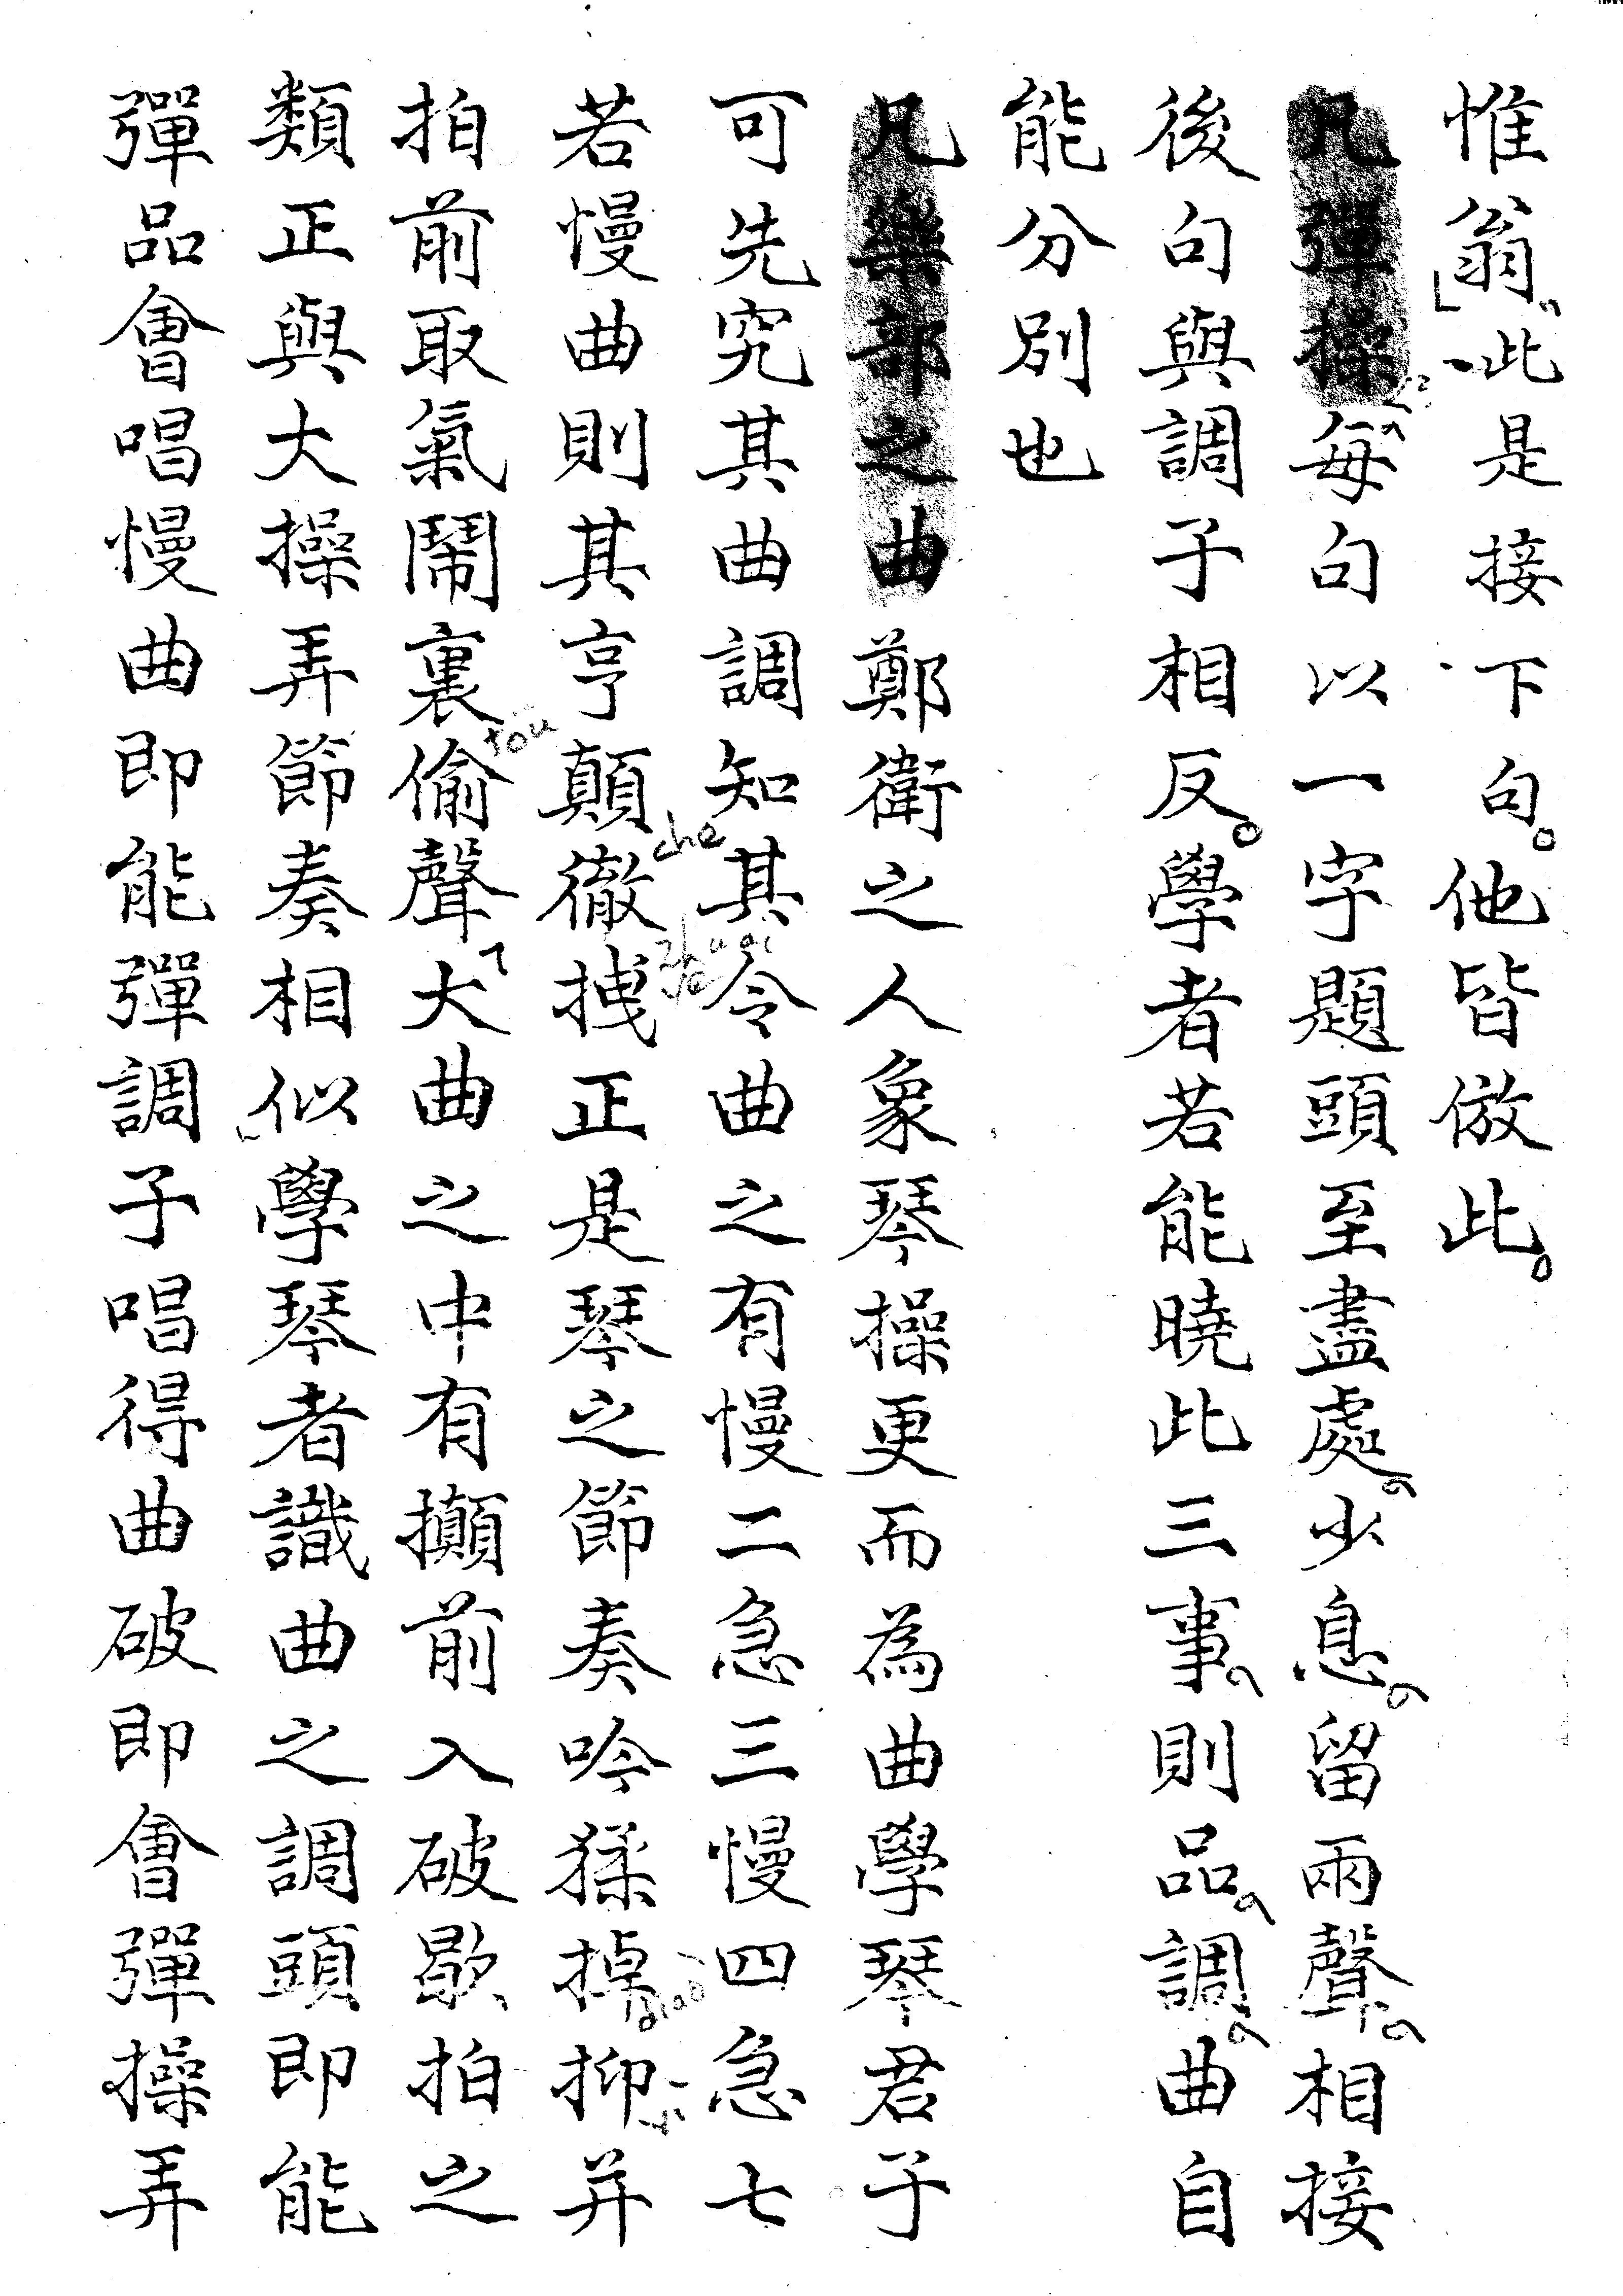 惟翁此是接下句他皆倣此
凡彈操每句以一字題頭至盡處少息留兩聲相接
後句與調子相反學者若能曉此三事則品調曲自
能分別也
凡樂部之曲鄭衛之人象琴操更而為曲學琴君子
可先究其曲調知其令曲之有慢二急三慢四急七
若慢曲則其亨顛徹拽正是琴之節奏吟猱掉抑并
拍前取氣鬧裏偷聲大曲之中有攧前入破歇拍之
類正與大操弄節奏相似學琴者識曲之調頭即能
彈品會唱慢曲即能彈調子唱得曲破即會彈操弄
tōu
chè
zhuai
ye
diao
yi